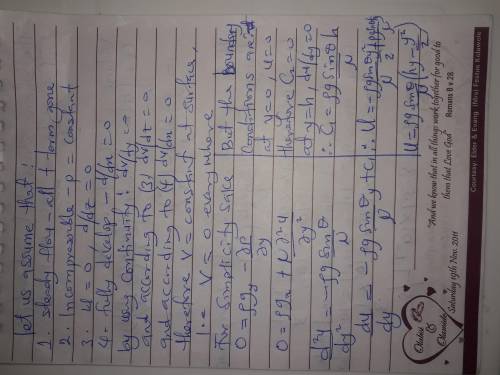 let us assume that:
1. steady flow - all t term gone
2. Incompressible - ρ = constant
3. W = 0 d/dz = 0
4. fully develop - d/dx = 0
by using continuity: dv/dy = 0
and according to (3) dv/dz = 0
and according to (4) dv/dx = 0
therefore V = constant at surface,
i.e V = 0 everywhere
For simplicity sake
0 = ρgy - ∂P/∂y
0 = ρgx + μ∂²u/∂y²
d²y/dy² = -ρg sinθ/μ
du/dy = -ρg sinθ y/μ + C1
But the boundary
Conditions are
at y=0, u=0
therefore C2=0
at y=h, du/dy=0
∴ C1 = ρg sinθ h/μ
∴ U = -ρg sinθ y²/μ 2
U = ρg sinθ/μ (hy - y²/2)
"And we know that in all things work together for good to
them that Love God"
Romans 8 v 28
Saturday 19th Nov. 2011
Courtesy: Elder & Evang. (Mrs) Festus Kolawole